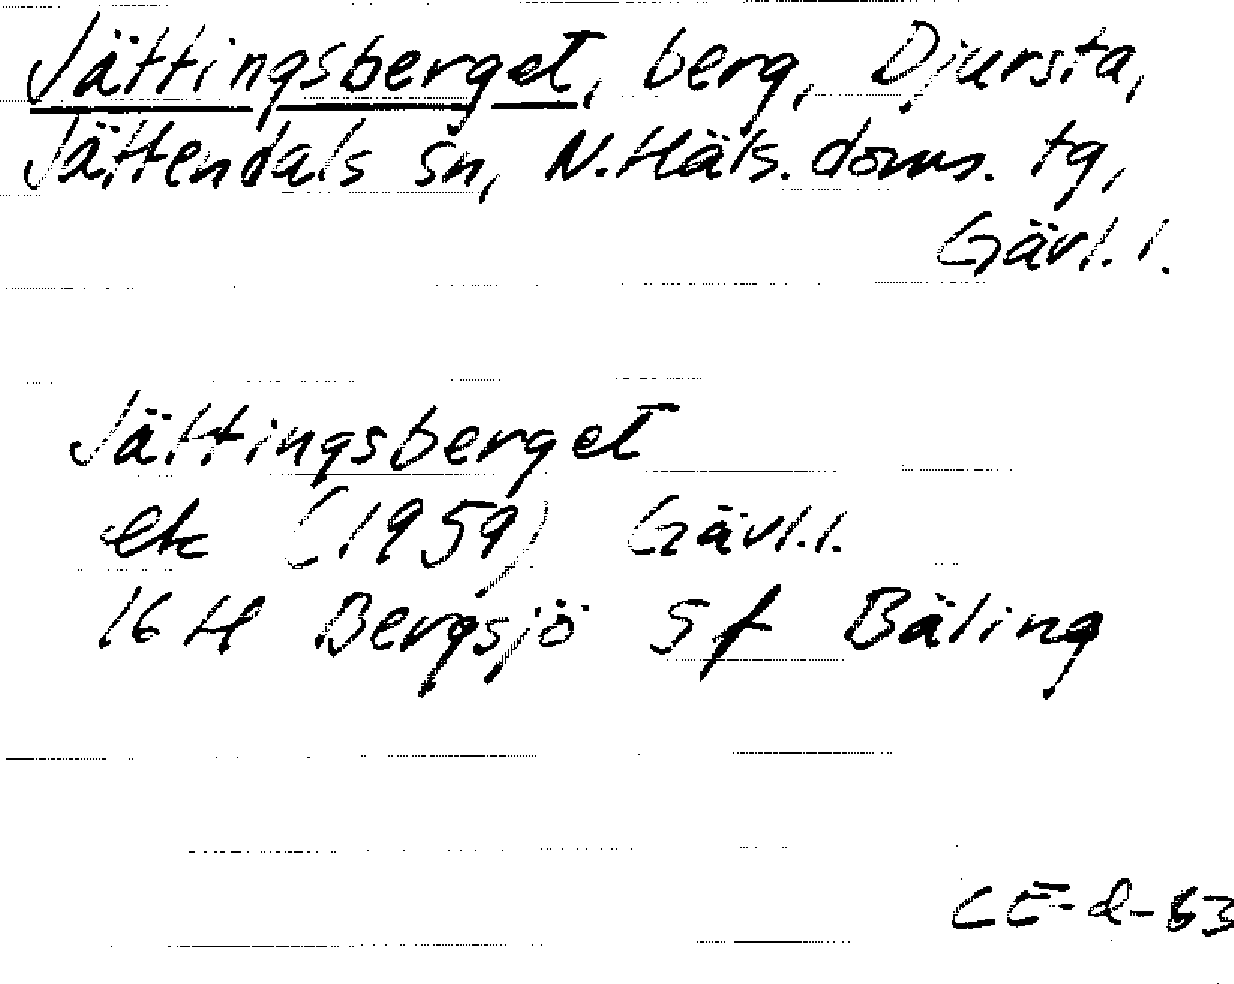 Jättingsberget, berg, Djursta,
Jättendals sn, N. Häls. doms. tg,
Gävl. l.
Jättingsberget
ek (1959) Gävl. l.
16 H Bergsjö Sf Bäling
CE-d-63